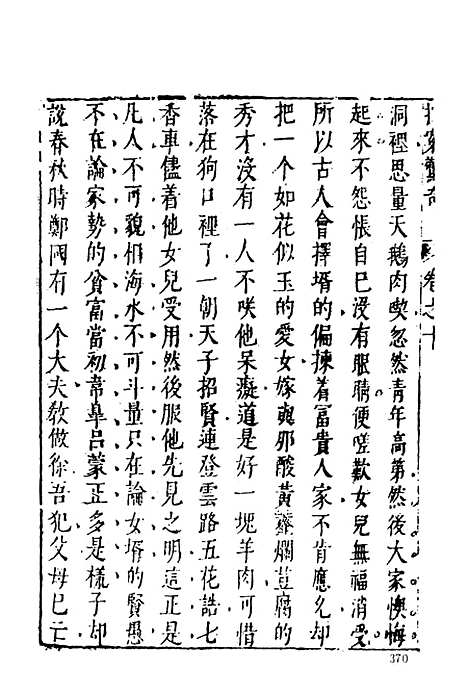 拍案驚奇　卷之十
洞裡思量天鵝肉喫忽然青年高第然後大家懊悔
起來不怨悵自己沒有眼睛便嗟歎女兒無福消受
所以古人會擇壻的偏揀着富貴人家不肯應允却
把一个如花似玉的愛女嫁與那酸黃虀爛荳腐的
秀才沒有一人不咲他呆癡道是好一塊羊肉可惜
落在狗口裡了一朝天子招賢連登雲路五花誥七
香車儘着他女兒受用然後服他先見之明這正是
凡人不可貌相海水不可斗量只在論女壻的賢愚
不在論家勢的貧富當初韋臯呂蒙正多是樣子却
說春秋時鄭國有一个大夫教做徐吾犯父母已亡
370